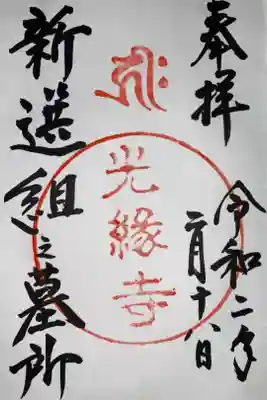 奉拝
令和二年
二月十八日
光縁寺
新選組之墓所